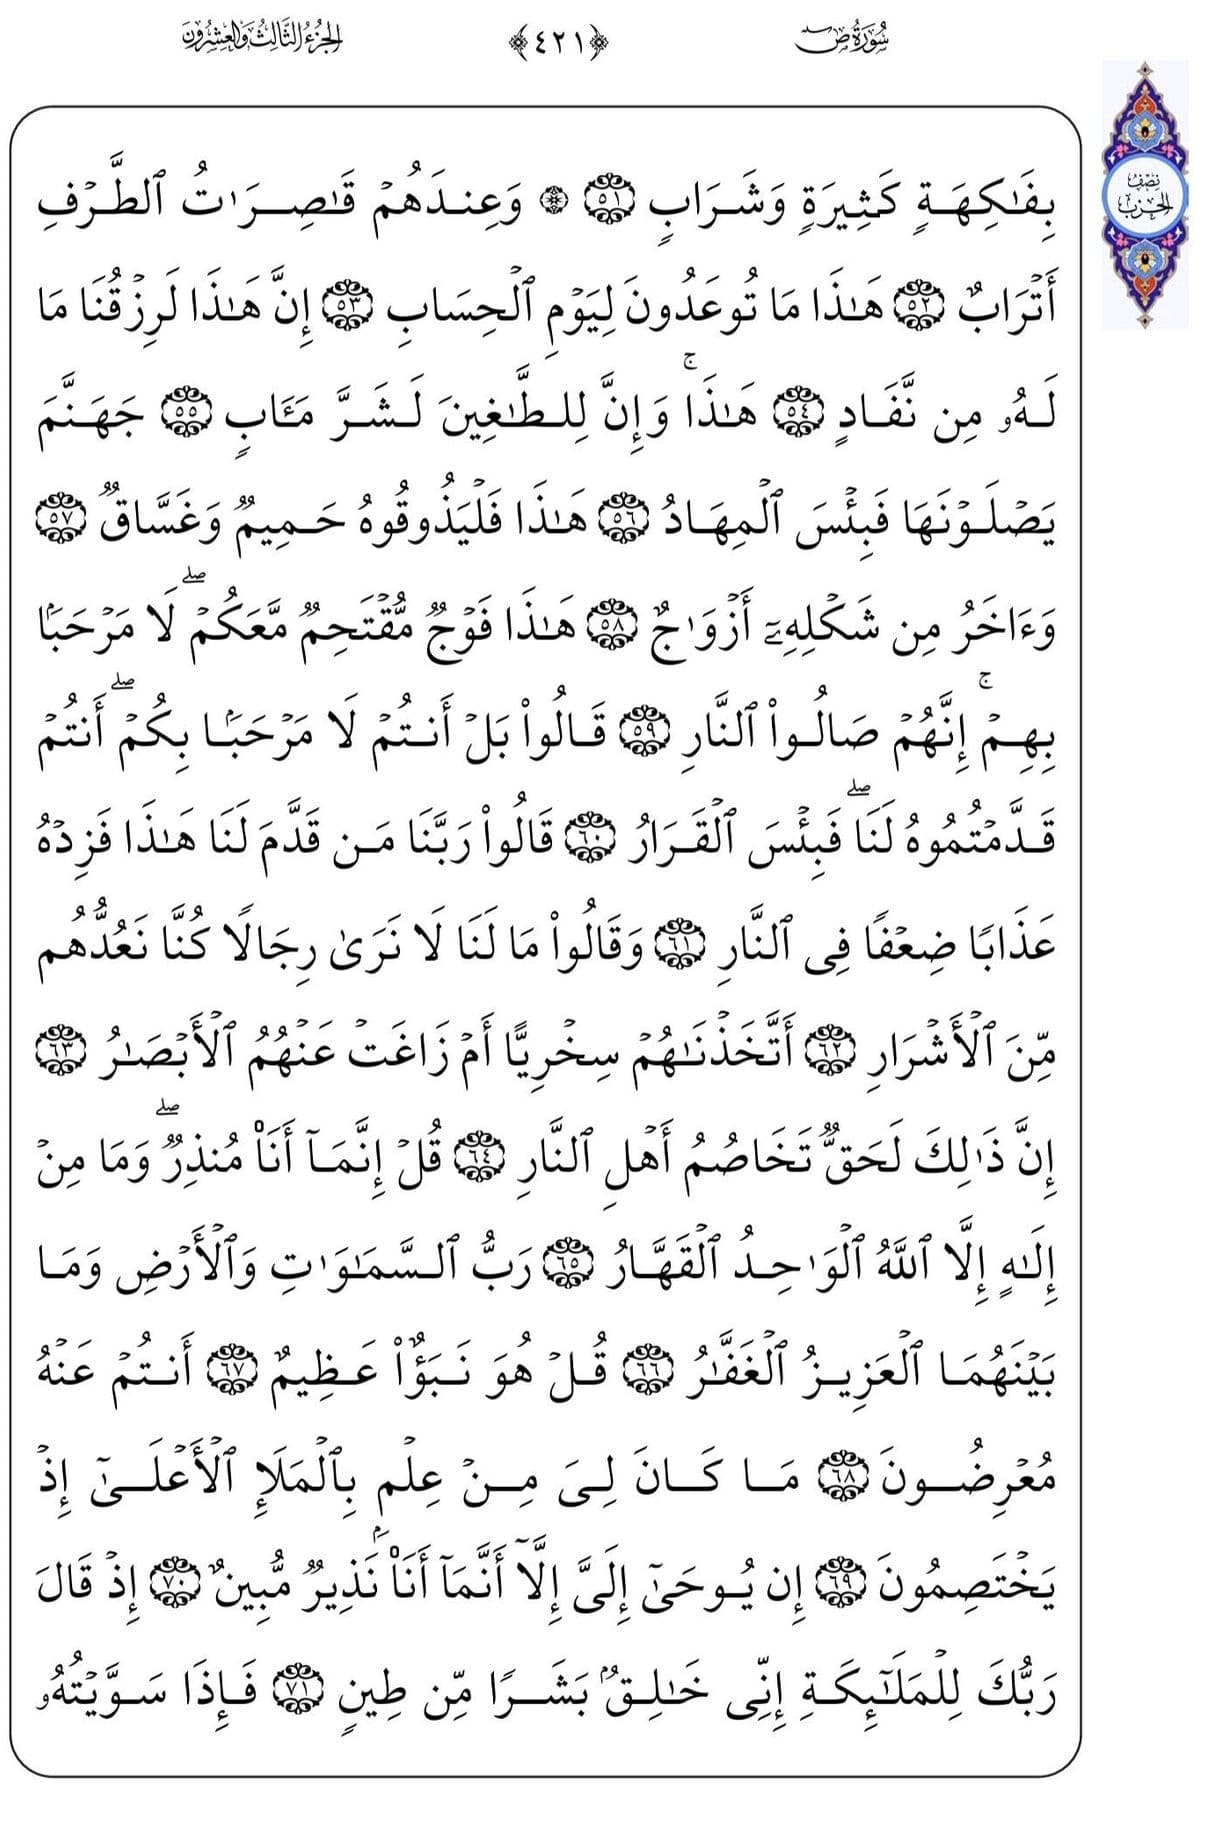 سُورَةُ صٓ ﴿٤٢١﴾ الجُزْءُ الثَّالِثُ وَالعِشْرُونَ
نِصْفُ
الحِزْبِ
بِفَٰكِهَةٍ كَثِيرَةٍ وَشَرَابٍ ٥١ ۞ وَعِندَهُمْ قَٰصِرَٰتُ ٱلطَّرْفِ
أَتْرَابٌ ٥٢ هَٰذَا مَا تُوعَدُونَ لِيَوْمِ ٱلْحِسَابِ ٥٣ إِنَّ هَٰذَا لَرِزْقُنَا مَا
لَهُۥ مِن نَّفَادٍ ٥٤ هَٰذَاۚ وَإِنَّ لِلطَّٰغِينَ لَشَرَّ مَـَٔابٍ ٥٥ جَهَنَّمَ
يَصْلَوْنَهَا فَبِئْسَ ٱلْمِهَادُ ٥٦ هَٰذَا فَلْيَذُوقُوهُ حَمِيمٌ وَغَسَّاقٌ ٥٧
وَءَاخَرُ مِن شَكْلِهِۦٓ أَزْوَٰجٌ ٥٨ هَٰذَا فَوْجٌ مُّقْتَحِمٌ مَّعَكُمْۖ لَا مَرْحَبًۢا
بِهِمْۚ إِنَّهُمْ صَالُوا۟ ٱلنَّارِ ٥٩ قَالُوا۟ بَلْ أَنتُمْ لَا مَرْحَبًۢا بِكُمْۖ أَنتُمْ
قَدَّمْتُمُوهُ لَنَاۖ فَبِئْسَ ٱلْقَرَارُ ٦٠ قَالُوا۟ رَبَّنَا مَن قَدَّمَ لَنَا هَٰذَا فَزِدْهُ
عَذَابًا ضِعْفًا فِى ٱلنَّارِ ٦١ وَقَالُوا۟ مَا لَنَا لَا نَرَىٰ رِجَالًا كُنَّا نَعُدُّهُم
مِّنَ ٱلْأَشْرَارِ ٦٢ أَتَّخَذْنَٰهُمْ سِخْرِيًّا أَمْ زَاغَتْ عَنْهُمُ ٱلْأَبْصَٰرُ ٦٣
إِنَّ ذَٰلِكَ لَحَقٌّ تَخَاصُمُ أَهْلِ ٱلنَّارِ ٦٤ قُلْ إِنَّمَآ أَنَا۠ مُنذِرٌۖ وَمَا مِنْ
إِلَٰهٍ إِلَّا ٱللَّهُ ٱلْوَٰحِدُ ٱلْقَهَّارُ ٦٥ رَبُّ ٱلسَّمَٰوَٰتِ وَٱلْأَرْضِ وَمَا
بَيْنَهُمَا ٱلْعَزِيزُ ٱلْغَفَّٰرُ ٦٦ قُلْ هُوَ نَبَؤٌا۟ عَظِيمٌ ٦٧ أَنتُمْ عَنْهُ
مُعْرِضُونَ ٦٨ مَا كَانَ لِىَ مِنْ عِلْمٍۭ بِٱلْمَلَإِ ٱلْأَعْلَىٰٓ إِذْ
يَخْتَصِمُونَ ٦٩ إِن يُوحَىٰٓ إِلَىَّ إِلَّآ أَنَّمَآ أَنَا۠ نَذِيرٌ مُّبِينٌ ٧٠ إِذْ قَالَ
رَبُّكَ لِلْمَلَٰٓئِكَةِ إِنِّى خَٰلِقٌۢ بَشَرًا مِّن طِينٍ ٧١ فَإِذَا سَوَّيْتُهُۥ